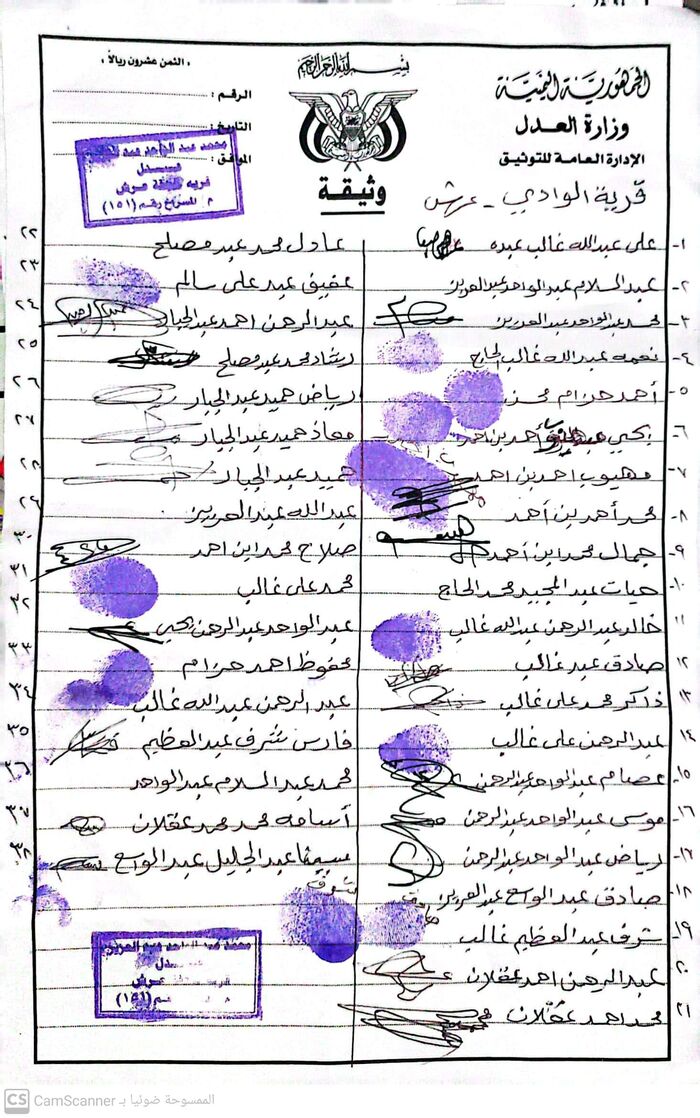 الجمهورية اليمنية
وزارة العدل
الإدارة العامة للتوثيق
بسم الله الرحمن الرحيم
وثيقة
« الثمن عشرون ريالاً »
الرقم :
التاريخ :
الموافق :
محمد عبد الواحد عبد العزيز
عدل
قرية عرش
(١٥١)
قرية الوادي - عرش
١- على عبدالله غالب عبده
٢- عبد السلام عبد الواحد عبد العزيز
٣- محمد عبد الواحد عبد العزيز
٤- نعمه عبد الله غالب الحاج
٥- أحمد حزام
٦- يحيى أحمد بن احمد
٧- مهيوب احمد بن احمد
٨- محمد أحمد بن أحمد
٩- جمال محمد ابن أحمد
١٠- حيات عبد المجيد محمد الحاج
١١ خالد عبد الرحمن عبد الله غالب
١٢ صادق عبد غالب
١٣ ذاكر محمد على غالب
١٤ عبد الرحمن على غالب
١٥- عصام عبد الواحد عبد الرحمن
١٦- موسى عبد الواحد عبد الرحمن
١٧- رياض عبد الواحد عبد الرحمن
١٨- صادق عبد الواسع عبد العزيز
صادق
١٩- شرف عبد العظيم غالب
٢٠- عبد الرحمن احمد عقلان
٢١ محمد احمد عقلان
٢٢ عادل محمد عبد مصلح
٢٣ عفيف عبد على سالم
٢٤ عبد الرحمن احمد عبد الجبار
٢٥ رشاد محمد عبد مصلح
٢٦ رياض حميد عبد الجبار
٢٧ معاذ حميد عبد الجبار
٢٨ حميد عبد الجبار
٢٩ عبد الله عبد العزيز
٣٠ صلاح محمد ابن احمد
٣١ محمد على غالب
٣٢ عبد الواحد عبد الرحمن يحيى
٣٣ محفوظ احمد حزام
٣٤ عبد الرحمن عبد الله غالب
٣٥ فارس شرف عبد العظيم
٣٦ محمد عبد السلام عبد الواحد
٣٧ أسامه محمد محمد عقلان
٣٨ عبد الجليل عبد الواسع
شرف
محمد عبد الواحد عبد العزيز
عدل
عرش
(١٥١)
CS CamScanner الممسوحة ضوئيا بـ